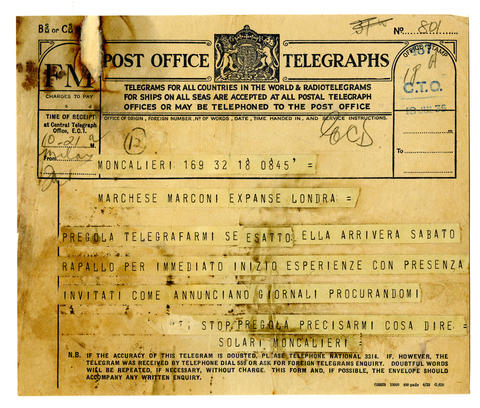 No. 801
POST OFFICE TELEGRAPHS
TELEGRAMS FOR ALL COUNTRIES IN THE WORLD & RADIOTELEGRAMS
FOR SHIPS ON ALL SEAS ARE ACCEPTED AT ALL POSTAL TELEGRAPH
OFFICES OR MAY BE TELEPHONED TO THE POST OFFICE
CHARGES TO PAY
C.T.O.
TIME OF RECEIPT
at Central Telegraph
Office, E.C.1.
OFFICE OF ORIGIN, FOREIGN NUMBER, Nº OF WORDS, DATE, TIME HANDED IN, AND SERVICE INSTRUCTIONS.
10-21
From
To
12
MONCALIERI 169 32 18 0845' =
MARCHESE MARCONI EXPANSE LONDRA =
PREGOLA TELEGRAFARMI SE ESATTO ELLA ARRIVERA SABATO
RAPALLO PER IMMEDIATO INIZIO ESPERIENZE CON PRESENZA
INVITATI COME ANNUNCIANO GIORNALI PROCURANDOMI
STOP PREGOLA PRECISARMI COSA DIRE =
SOLARI MONCALIERI =
N.B. IF THE ACCURACY OF THIS TELEGRAM IS DOUBTED, PLEASE TELEPHONE NATIONAL 3214. IF, HOWEVER, THE
TELEGRAM WAS RECEIVED BY TELEPHONE DIAL 559 OR ASK FOR FOREIGN TELEGRAMS ENQUIRY. DOUBTFUL WORDS
WILL BE REPEATED, IF NECESSARY, WITHOUT CHARGE. THIS FORM AND, IF POSSIBLE, THE ENVELOPE SHOULD
ACCOMPANY ANY WRITTEN ENQUIRY.